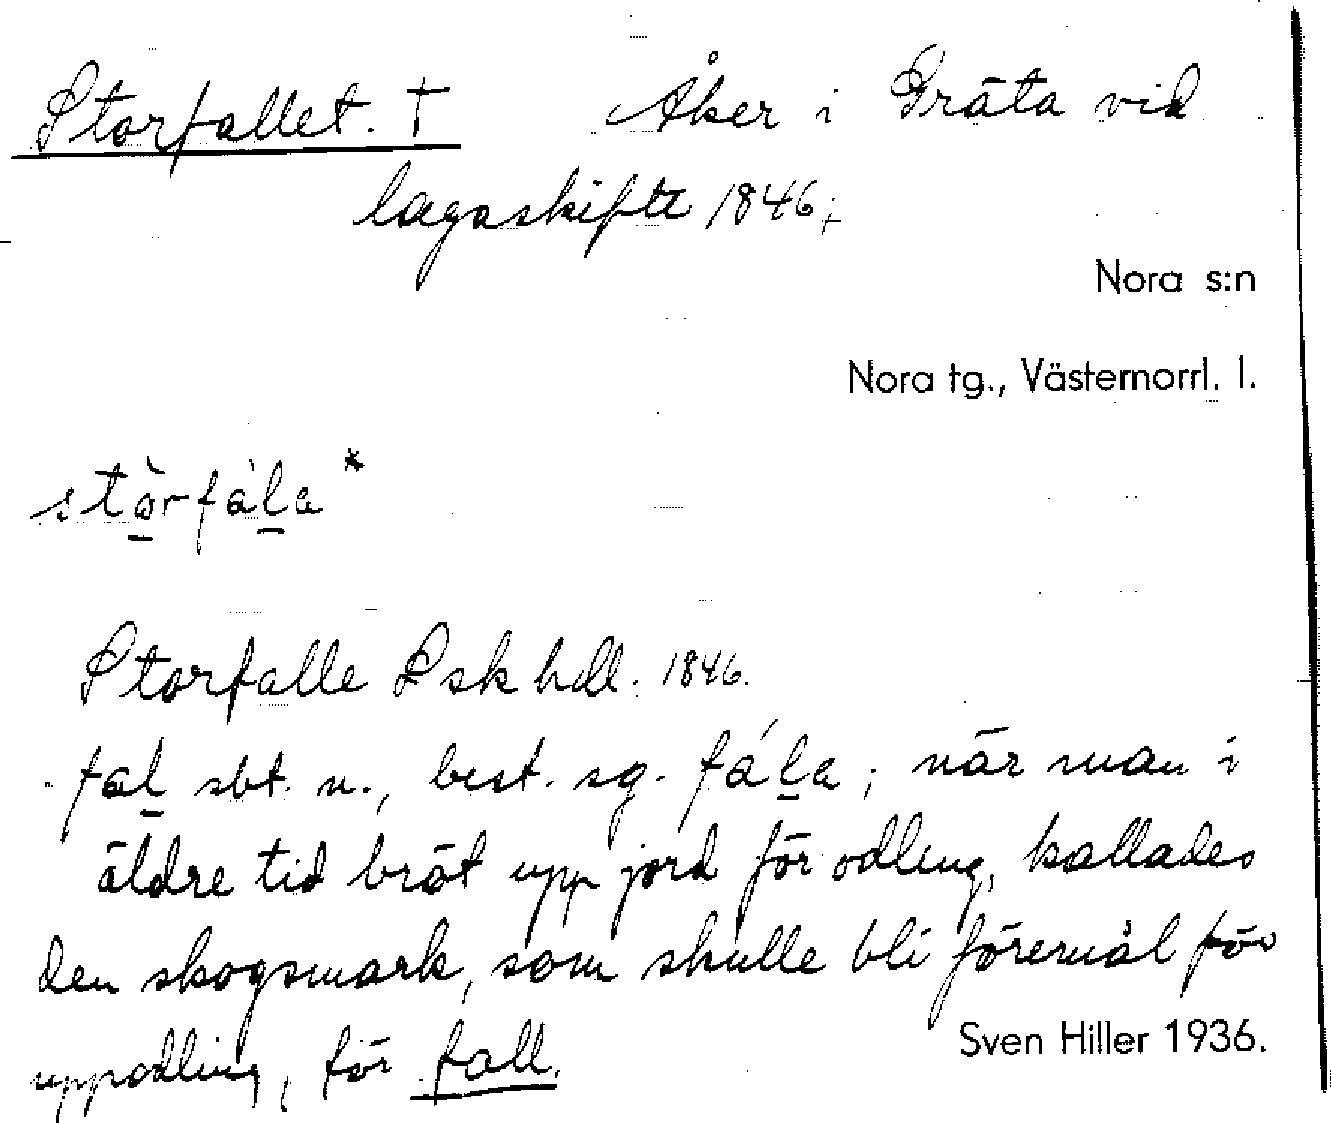 Storfallet. † Åker i Gräta vid
lagaskifte 1846;
Nora s:n
Nora tg., Västernorrl. l.
stòrfàla*
Storfalle Lsk hdl. 1846.
fal sbt. n., best. sg. fála; när man i
äldre tid bröt upp jord för odling, kallades
den skogsmark, som skulle bli föremål för
uppodling, för fall.
Sven Hiller 1936.